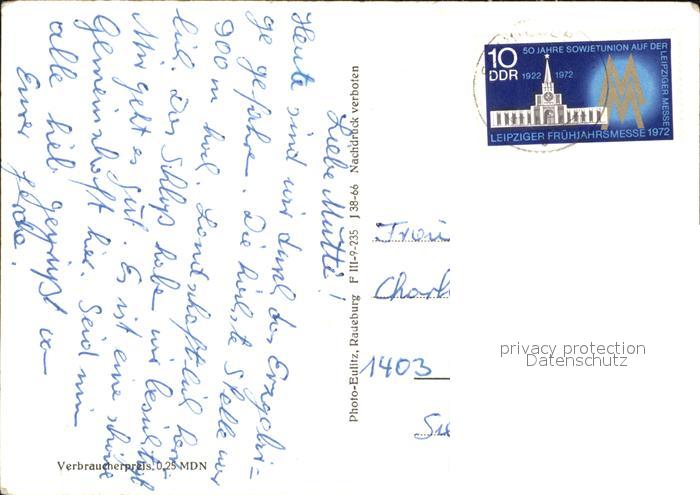 Liebe Mutti!
Heute sind wir durch das Erzgebir=
ge gefahren. Die höchste Stelle war
900 m hoch. Landschaftlich herr
lich. Das Schloß haben wir besichtigt
Mir geht es gut. Es ist eine schöne
Gemeinschaft hier. Seid nun
alle lieb gegrüßt von
Eurer
Photo-Eulitz, Raueburg F III-9-235 J 38-66 Nachdruck verboten
Verbraucherpreis: 0,25 MDN
10
DDR
50 JAHRE SOWJETUNION AUF DER
LEIPZIGER MESSE
1922 1972
LEIPZIGER FRÜHJAHRSMESSE 1972
Frau
Charl
1403
privacy protection
Datenschutz